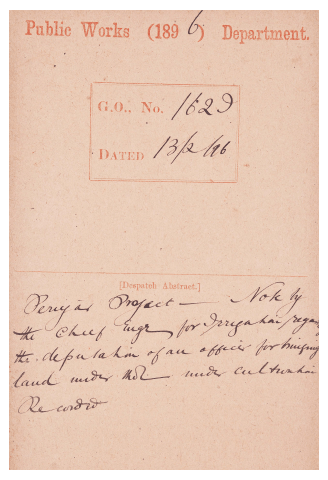 Public Works (1896) Department.
G.O., No. 1629
DATED 13/2/96
[Despatch Abstract.]
Periyar Project — Note by
the Chief Engr for Irrigation, regarding
the deputation of an officer for bringing
land under the under cultivation
Recorded